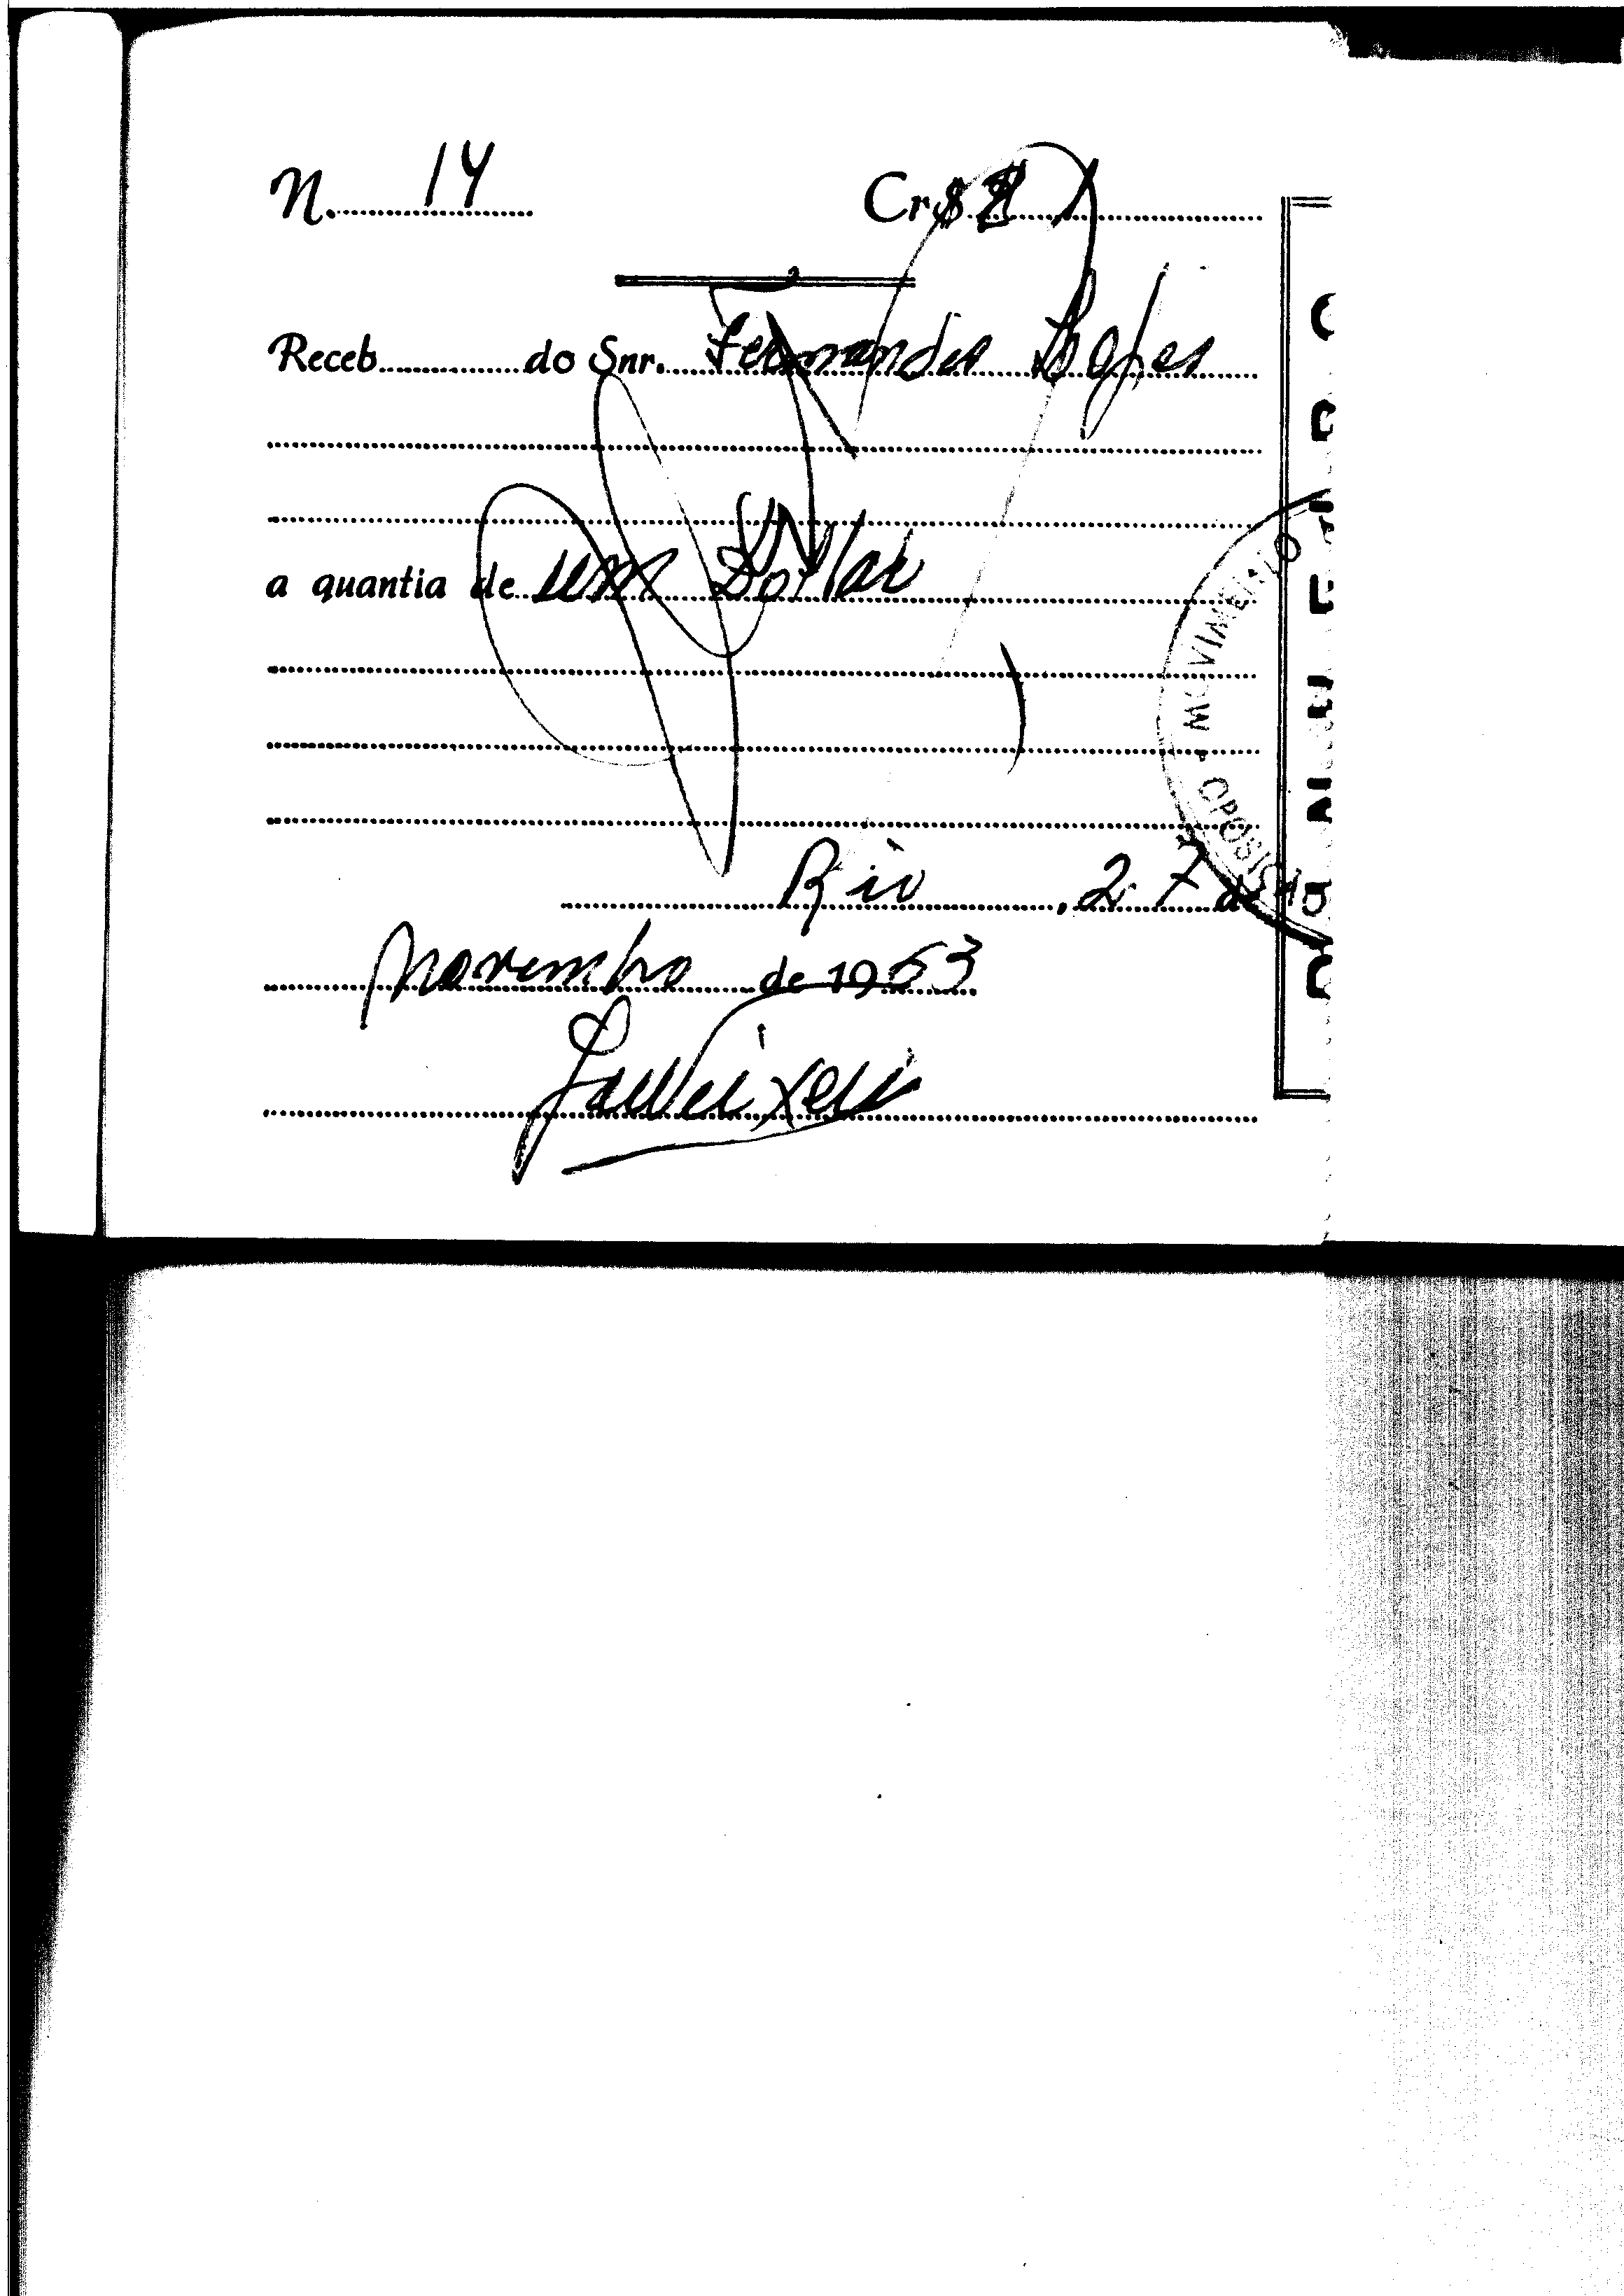 N. 14 Cr$
Receb do Snr. Fernandes Lopes
a quantia de um Dollar
Rio, 27 de
novembro de 1963
MOVIMENTO